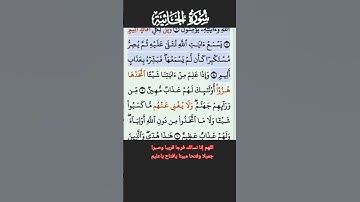 سُورَةُ الجَاثِيَةِ
ٱللَّهِ وَءَايَٰتِهِۦ يُؤْمِنُونَ ۝ وَيْلٌ لِّكُلِّ أَفَّاكٍ أَثِيمٍ
۝ يَسْمَعُ ءَايَٰتِ ٱللَّهِ تُتْلَىٰ عَلَيْهِ ثُمَّ يُصِرُّ
مُسْتَكْبِرًا كَأَن لَّمْ يَسْمَعْهَا فَبَشِّرْهُ بِعَذَابٍ
أَلِيمٍ ۝ وَإِذَا عَلِمَ مِنْ ءَايَٰتِنَا شَيْـًٔا ٱتَّخَذَهَا
هُزُوًا أُو۟لَٰٓئِكَ لَهُمْ عَذَابٌ مُّهِينٌ ۝ مِّن
وَرَآئِهِمْ جَهَنَّمُ وَلَا يُغْنِى عَنْهُم مَّا كَسَبُوا۟
شَيْـًٔا وَلَا مَا ٱتَّخَذُوا۟ مِن دُونِ ٱللَّهِ أَوْلِيَآءَ
وَلَهُمْ عَذَابٌ عَظِيمٌ ۝ هَٰذَا هُدًى وَٱلَّذِينَ
اللهم إنا نسألك فرجا قريبا وصبرا
جميلا وفتحا مبينا يافتاح ياعليم